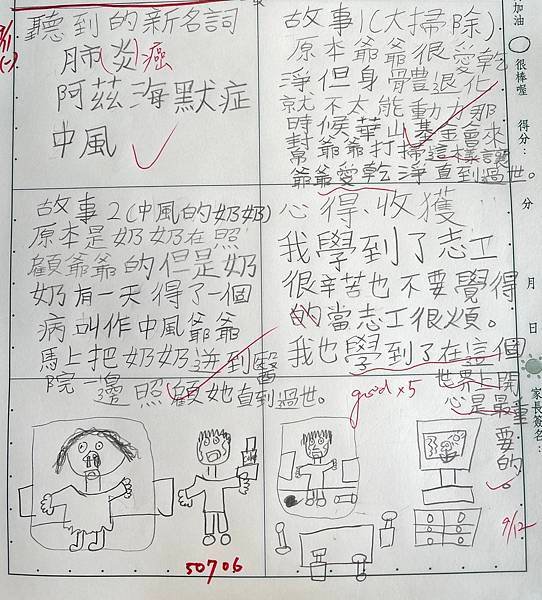 聽到的新名詞
肺炎癌
阿茲海默症
中風
故事1(大掃除)
原本爺爺很愛乾
淨但身體退化
就不太能動力那
時候華山基金會來
幫爺爺打掃這樣讓
爺爺愛乾淨直到過世。
故事2(中風的奶奶)
原本是奶奶在照
顧爺爺的但是奶
奶有一天得了一個
病叫作中風爺爺
馬上把奶奶送到醫
院一邊照顧她直到過世。
心得、收獲
我學到了志工
很辛苦也不要覺得
的當志工很煩。
我也學到了在這個
世界上開
心是最重
要的。
good x5
9/12
50706
加油
很棒喔
得分:
分
月
日
家長簽名: